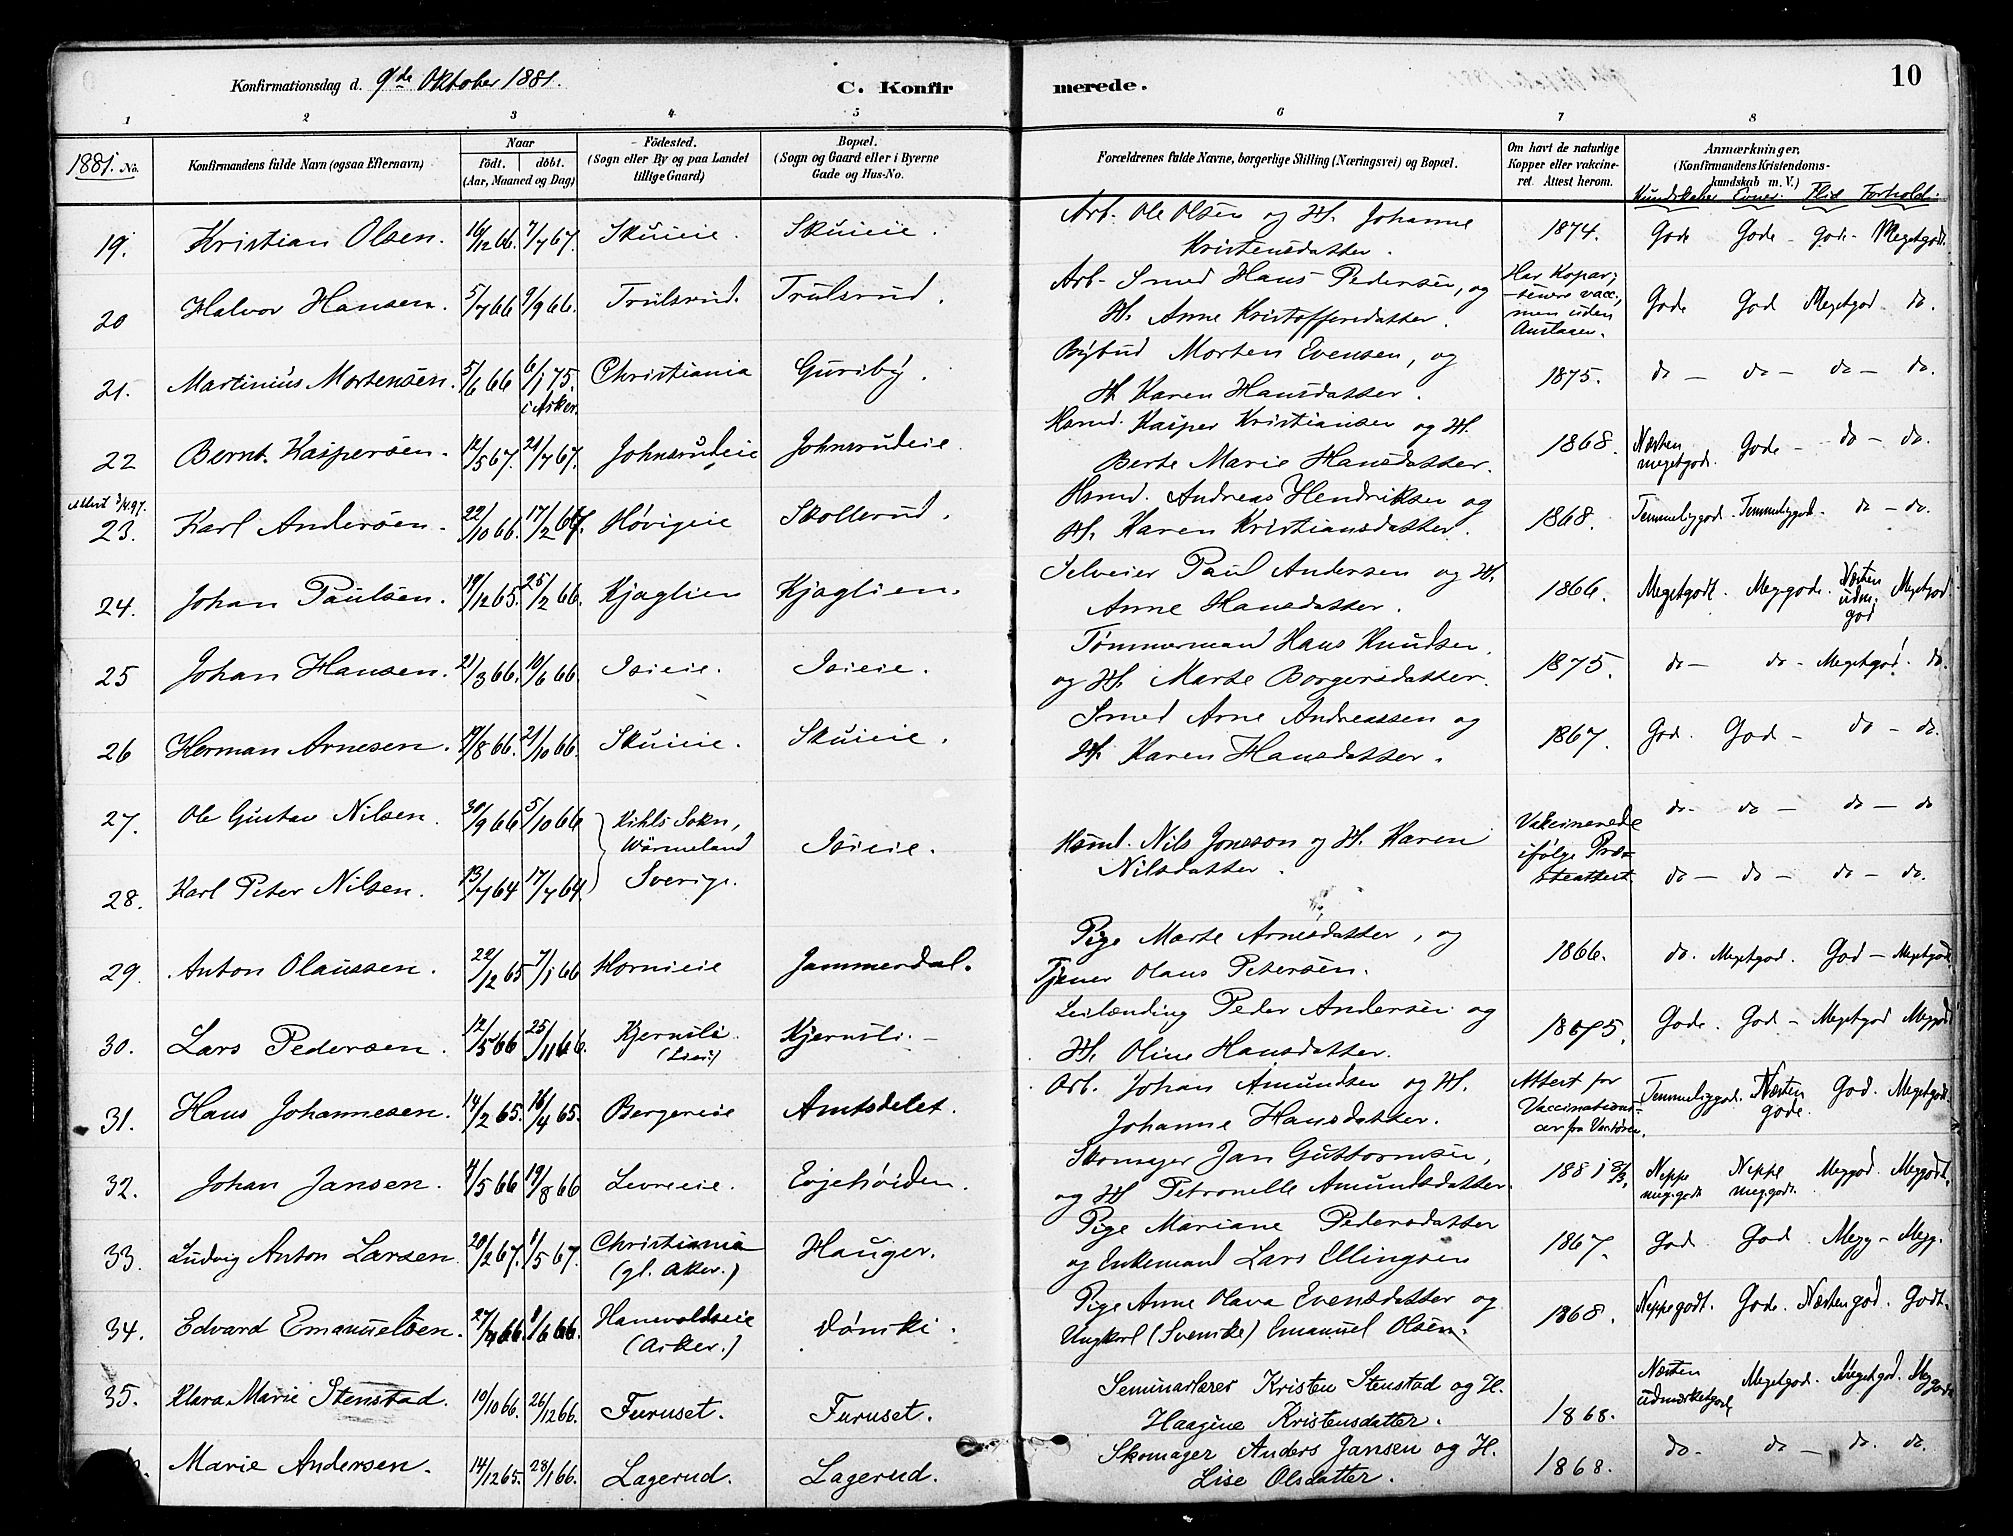 Konfirmationsdag d. 9de Oktober 1881.
C. Konfirmerede.
10
1 2 3 4 5 6 7 8
1881. No.
Konfirmandens fulde Navn (ogsaa Efternavn)
Naar
födt. döbt.
(Aar, Maaned og Dag)
Födested.
(Sogn eller By og paa Landet
tillige Gaard)
Bopæl.
(Sogn og Gaard eller i Byerne
Gade og Hus-No.
Forældrenes fulde Navne, borgerlige Stilling (Næringsvei) og Bopæl.
Om havt de naturlige
Kopper eller vakcine-
ret. Attest herom.
Anmærkninger,
(Konfirmandens Kristendoms-
kundskab m. V.)
Kundskaber Evner. Flid Forhold.
19. Kristian Olsen. 16/12 66. 7/7 67. Skuieie. Skuieie. Arb. Ole Olsen og H. Johanne
Kristensdatter. 1874. Gode Gode - god - Megetgodt.
20 Halvor Hansen. 5/7 66 9/9 66. Trulsrud. Trulsrud. Arb. Smed Hans Pedersen, og
H. Anne Kristoffersdatter. Har Kopar-
sener vacc.,
men uden
Anslaaen. Gode God Megetgod. do.
21. Martinius Mortensen. 5/6 66 6/1 75. i Asker. Christiania Guriby. Bybud Morten Evensen, og
H. Karen Hansdatter. 1875. do - do - do - do.
22 Bernt Kaspersen. 12/5 67. 21/7 67. Johnsrudeie Johnsrudeie. Husmd. Kasper Kristiansen og H.
Berte Marie Hansdatter. 1868. Næsten
megetgode. Gode - do - do.
Attest 3/4 97.
23. Karl Andersen. 22/10 66. 17/2 67. Høvigeie Skollerud. Husmd. Andreas Hendriksen og
H. Karen Kristiansdatter. 1868. Temmeliggod. Temmeliggod. do - do.
24. Johan Paulsen. 19/12 65. 25/2 66. Kjaglien Kjaglien. Selveier Paul Andersen og H.
Anne Hansdatter. 1866. Megetgodt. Meg. gode. Næsten
udm.
god Megetgod.
25 Johan Hansen. 21/3 66. 10/6 66. Isieie. Isieie. Tømmermand Hans Knudsen.
og H. Marte Borgersdatter. 1875. do - do - Megetgod. do.
26 Herman Arnesen. 19/8 66. 21/10 66. Skuieie. Skuieie. Smed Arne Andreassen og
H. Karen Hansdatter. 1867. God. God - do - do.
27. Ole Gustav Nilsen. 30/9 66 5/10 66 Kihls Sokn,
Wärmeland
Sverige. Isieie. Husmd. Nils Jonsson og H. Karen
Nilsdatter. Vakcinerede
ifølge Præ-
steattest. do - do - do - do
28. Karl Peter Nilsen. 13/7 64 17/7 64. do - do - do - do.
29. Anton Olaussen. 22/12 65 7/1 66 Hornieie Jammerdal. Pige Marte Arnesdatter, og
Tjener Olaus Petersen. 1866. do. Megetgod. God - Megetgod.
30. Lars Pedersen. 12/5 66 25/11 66. Kjernsli
(Lier) Kjernsli. - Leilænding Peder Andersen og
H. Oline Hansdatter. 1875. Gode. God - Megetgod Meggod
31. Hans Johannesen. 14/2 65. 16/4 65. Bergereie Amtsdelet. Arb. Johan Amundsen og H.
Johanne Hansdatter. Attest for
Vaccinations-
ar fra Doktoren. Temmeliggod. Næsten
gode. God. Megetgod.
32. Johan Jansen. 4/5 66 19/8 66 Levreeie. Evjehøiden. Skomager Jan Guttormsen,
og H. Petronelle Amundsdatter. 1881 Neppe
meg. godt Neppe
meg. godt. Meggod. Meggodt.
33. Ludvig Anton Larsen. 20/2 67. 1/5 67. Christiania
(gl. Aker.) Hauger. Pige Mariane Pedersdatter
og Enkemand Lars Ellingsen 1867. God God Megg - Megg.
34. Edvard Emanuelsen. 27/4 66. 1/6 66. Hanevoldseie
(Asker.) Dønski. Pige Anne Olava Evensdatter og
Ungkarl (Svenske) Emanuel Olsen. 1868. Neppegodt. Gode. Næsten god. Godt.
35. Klara Marie Stenstad. 10/10 66. 26/12 66. Furuset. Furuset. Seminarlærer Kristen Stenstad og H.
Haagine Kristensdatter. 1868. Næsten
udmærketgod Megetgod. Megetgod. Meg
gode
Marie Andersen. 14/12 65. 28/1 66. Lagerud. Lagerud. Skomager Anders Jansen og H.
Lise Olsdatter. 1868. do - do - do. do.